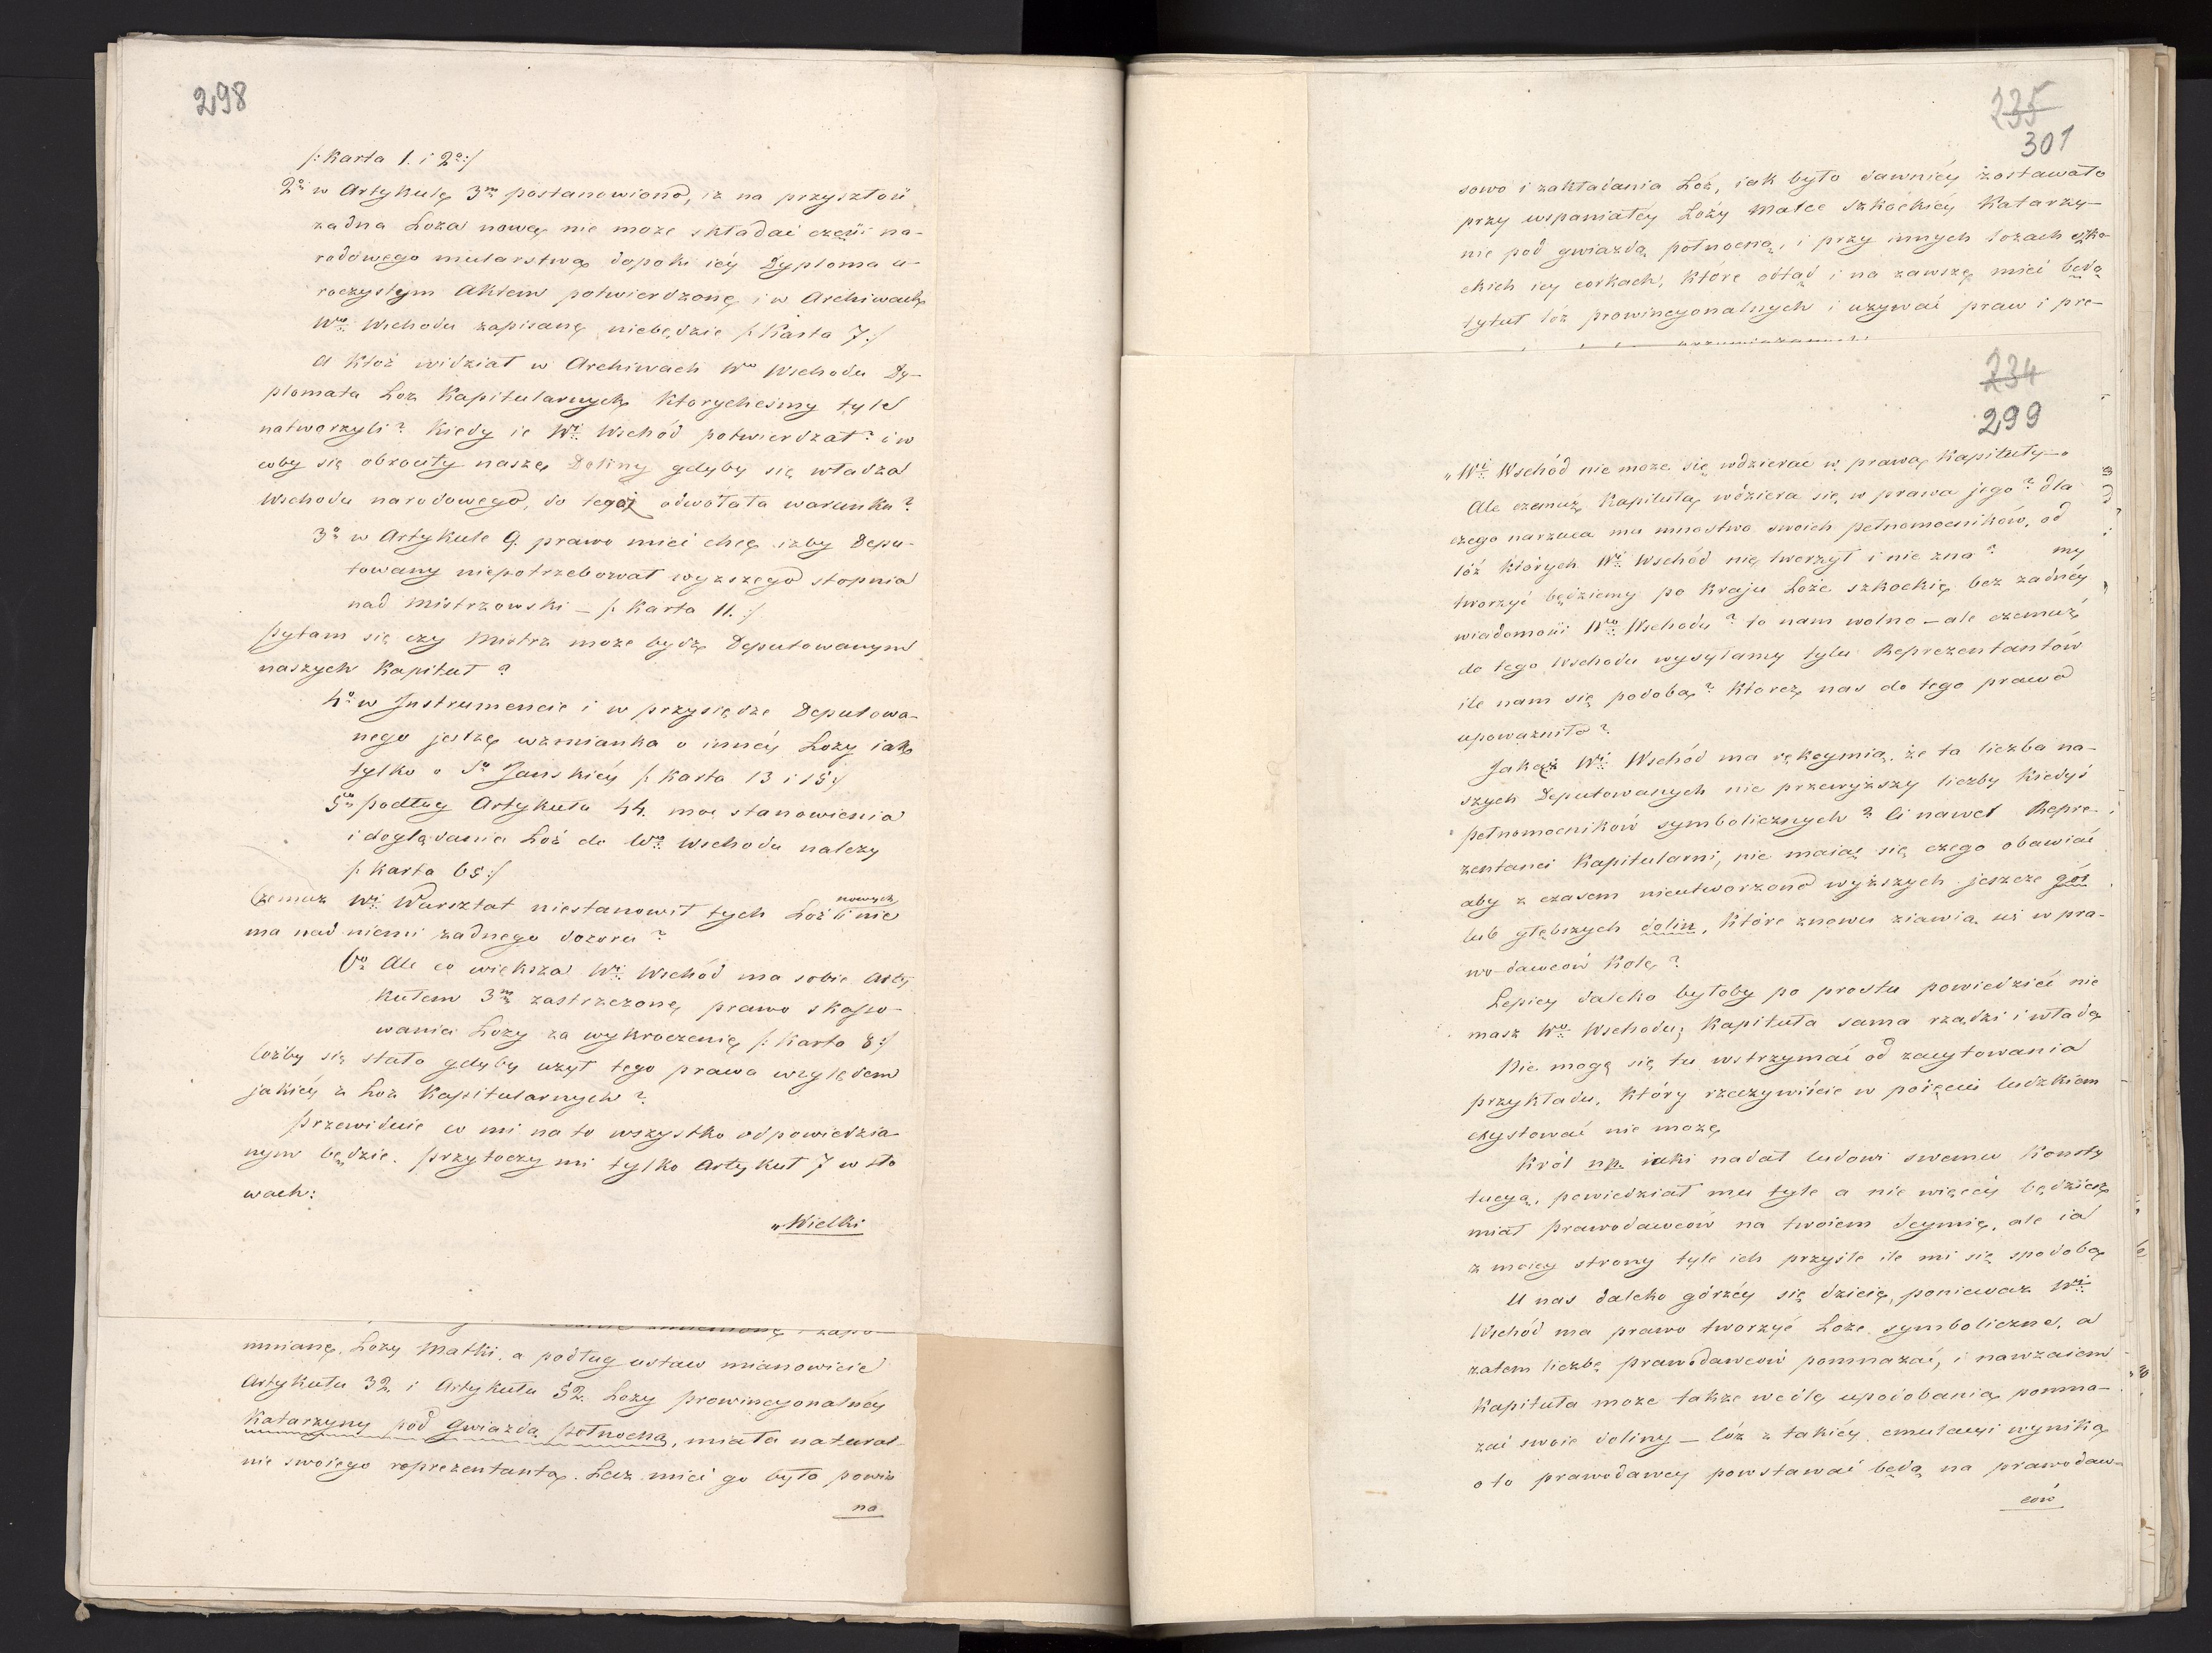 298
/: Karta 1. i 2º :/
2º w Artykule 3m postanowiono, iż na przyszłość
żadna Loża nowa nie może składać części na-
rodowego mularstwa dopóki iéy Dyploma u-
roczystym Aktem potwierdzone i w Archiwach
Wgo Wschodu zapisane niebędzie /: Karta 7 :/
A któż widział w Archiwach Wgo Wschodu Dy-
plomata Loż Kapitularnych którycheśmy tyle
natworzyli? Kiedy ie Wi: Wschód potwierdzał? i w
coby się obróciły nasze Doliny gdyby się władza
Wschodu narodowego, do tegoż odwołała warunku?
3º w Artykule 9. prawo mieć chce iżby Depu-
towany niepotrzebował wyższego stopnia
nad Mistrzowski – /: Karta 11. :/
pytam się czy Mistrz może bydź Deputowanym
naszych Kapituł?
4º w Instrumencie i w przysiędze Deputowa-
nego jestże wzmianka o innéy Loży iak
tylko o So Jańskiéy /: Karta 13 i 15 :/
5º podług Artykułu 44. moc stanowienia
i doglądania Loż do Wgo Wschodu należy
/: Karta 65 :/
Czemuż Wi: Warsztat niestanowił tych Loż nowych li nie
ma nad niemi żadnego dozoru?
6º Ale co większa Wi: Wschód ma sobie Arty
kułem 3m zastrzeżone prawo skasso-
wania Loży za wykroczenie /: Karta 8 :/
cożby się stało gdyby użył tego prawa względem
jakiéy z Loż Kapitularnych?
przewiduie co mi na to wszystko odpowiedzia
nym będzie. przytoczy mi tylko Artykuł 7 w sło
wach:
„Wielki
mniane. Loży Matki, a podług ustaw mianowicie
Artykułu 32 i Artykułu 52. Loży prowincyonalnéy
Katarzyny pod Gwiazdą północną, miała natural-
nie swoiego reprezentanta. Lecz mieć go była powin
na
235
301
sowo i zakładania Loż, iak było dawniéy zostawało
przy wspaniałéy Loży Matce Szkockiéy Katarzy-
nie pod gwiazdą północną, i przy innych lożach szko-
ckich iey corkach, które odtąd i na zawsze mieć będą
tytuł lóż prowincyonalnych i używać praw i pre-
234
299
„Wi: Wschód nie może się wdzierać w prawa Kapituły –„
Ale czemuż Kapituła wdziera się w prawa jego? dla
czego narzuca mu mnostwo swoich pełnomocników, od
lóż których Wi: Wschód nie tworzył i nie zna? my
tworzyć będziemy po Kraju Loże szkockie bez żadnéy
wiadomości Wgo Wschodu? to nam wolno – ale czemuż
do tego Wschodu wysyłamy tylu Reprezentantów
ile nam się podoba? Któreż nas do tego prawo
upoważniło?
Jakąż Wi: Wschód ma rękoymią, że ta liczba na-
szych Deputowanych nie przewyższy liczby kiedyś
pełnomocników symbolicznych? li nawet Repre-
zentanci Kapitularni, nie maią się czego obawiać
aby z czasem nieutworzono wyższych jeszcze gór
lub głębszych dolin, które znowu ziawią się w pra-
wo-dawców kole?
Lepiey daleko byłoby po prostu powiedzieć nie
masz Wgo Wschodu; Kapituła sama rządzi i włada
Nie mogę się tu wstrzymać od zacytowania
przykładu, który rzeczywiście w poięciu ludzkiem
exystować nie może
Król np. iaki nadał ludowi swemu Konsty
tucyą, powiedział mu tyle a nie więcéy będziesz
miał prawodawców na twoiem Seymie, ale ia
z moiey strony tyle ich przyśle ile mi się spodoba
U nas daleko górzéy się dzieie, ponieważ Wi:
Wschód ma prawo tworzyć Loże symboliczne, a
zatem liczbę prawodawców pomnażać, i nawzaiem
Kapituła może także wedle upodobania pomna-
żać swoie doliny – lóż z takiéy emulacyi wynika
oto prawodawcy powstawać będą na prawodaw-
ców